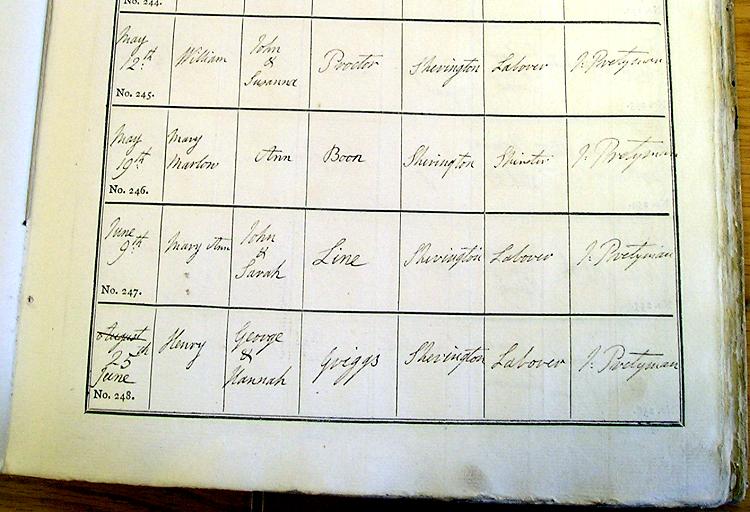 No. 244.
May 12th William John & Susanna Proctor Shevington Labover J. Pretyman
No. 245.
May 19th Mary Marlow Ann Boon Shevington Spinster J. Pretyman
No. 246.
June 9th Mary Ann John & Sarah Line Shevington Labover J. Pretyman
No. 247.
August 25th June Henry George & Hannah Griggs Shevington Labover J. Pretyman
No. 248.